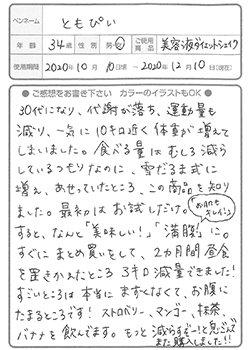 ペンネーム ともぴぃ
年齢 34歳 性別 男・女 ご使用商品 美容液ダイエットシェイク
使用期間 2020年10月10日頃 ~ 2020年12月10日(現在)
●ご感想をお書き下さい カラーのイラストもOK●
30代になり、代謝が落ち、運動量も
減り、一気に10キロ近く体重が増えて
しまいました。食べる量はむしろ減ら
しているつもりなのに、雪だるま式に
増え、あせっていたところ、この商品を知り
ました。最初はお試しだけ。「お肌も
キレイ」
すると、なんと「美味しい!」「満腹」に。
すぐにまとめ買いをして、2カ月間昼食
を置きかえたところ 3キロ減量できました!
すごいところは本当にまずくなくて、お腹に
たまるところです!ストロベリー、マンゴー、抹茶、
バナナを飲んでます。もっと減らすぞー!と意気ごんで
また購入しました!!